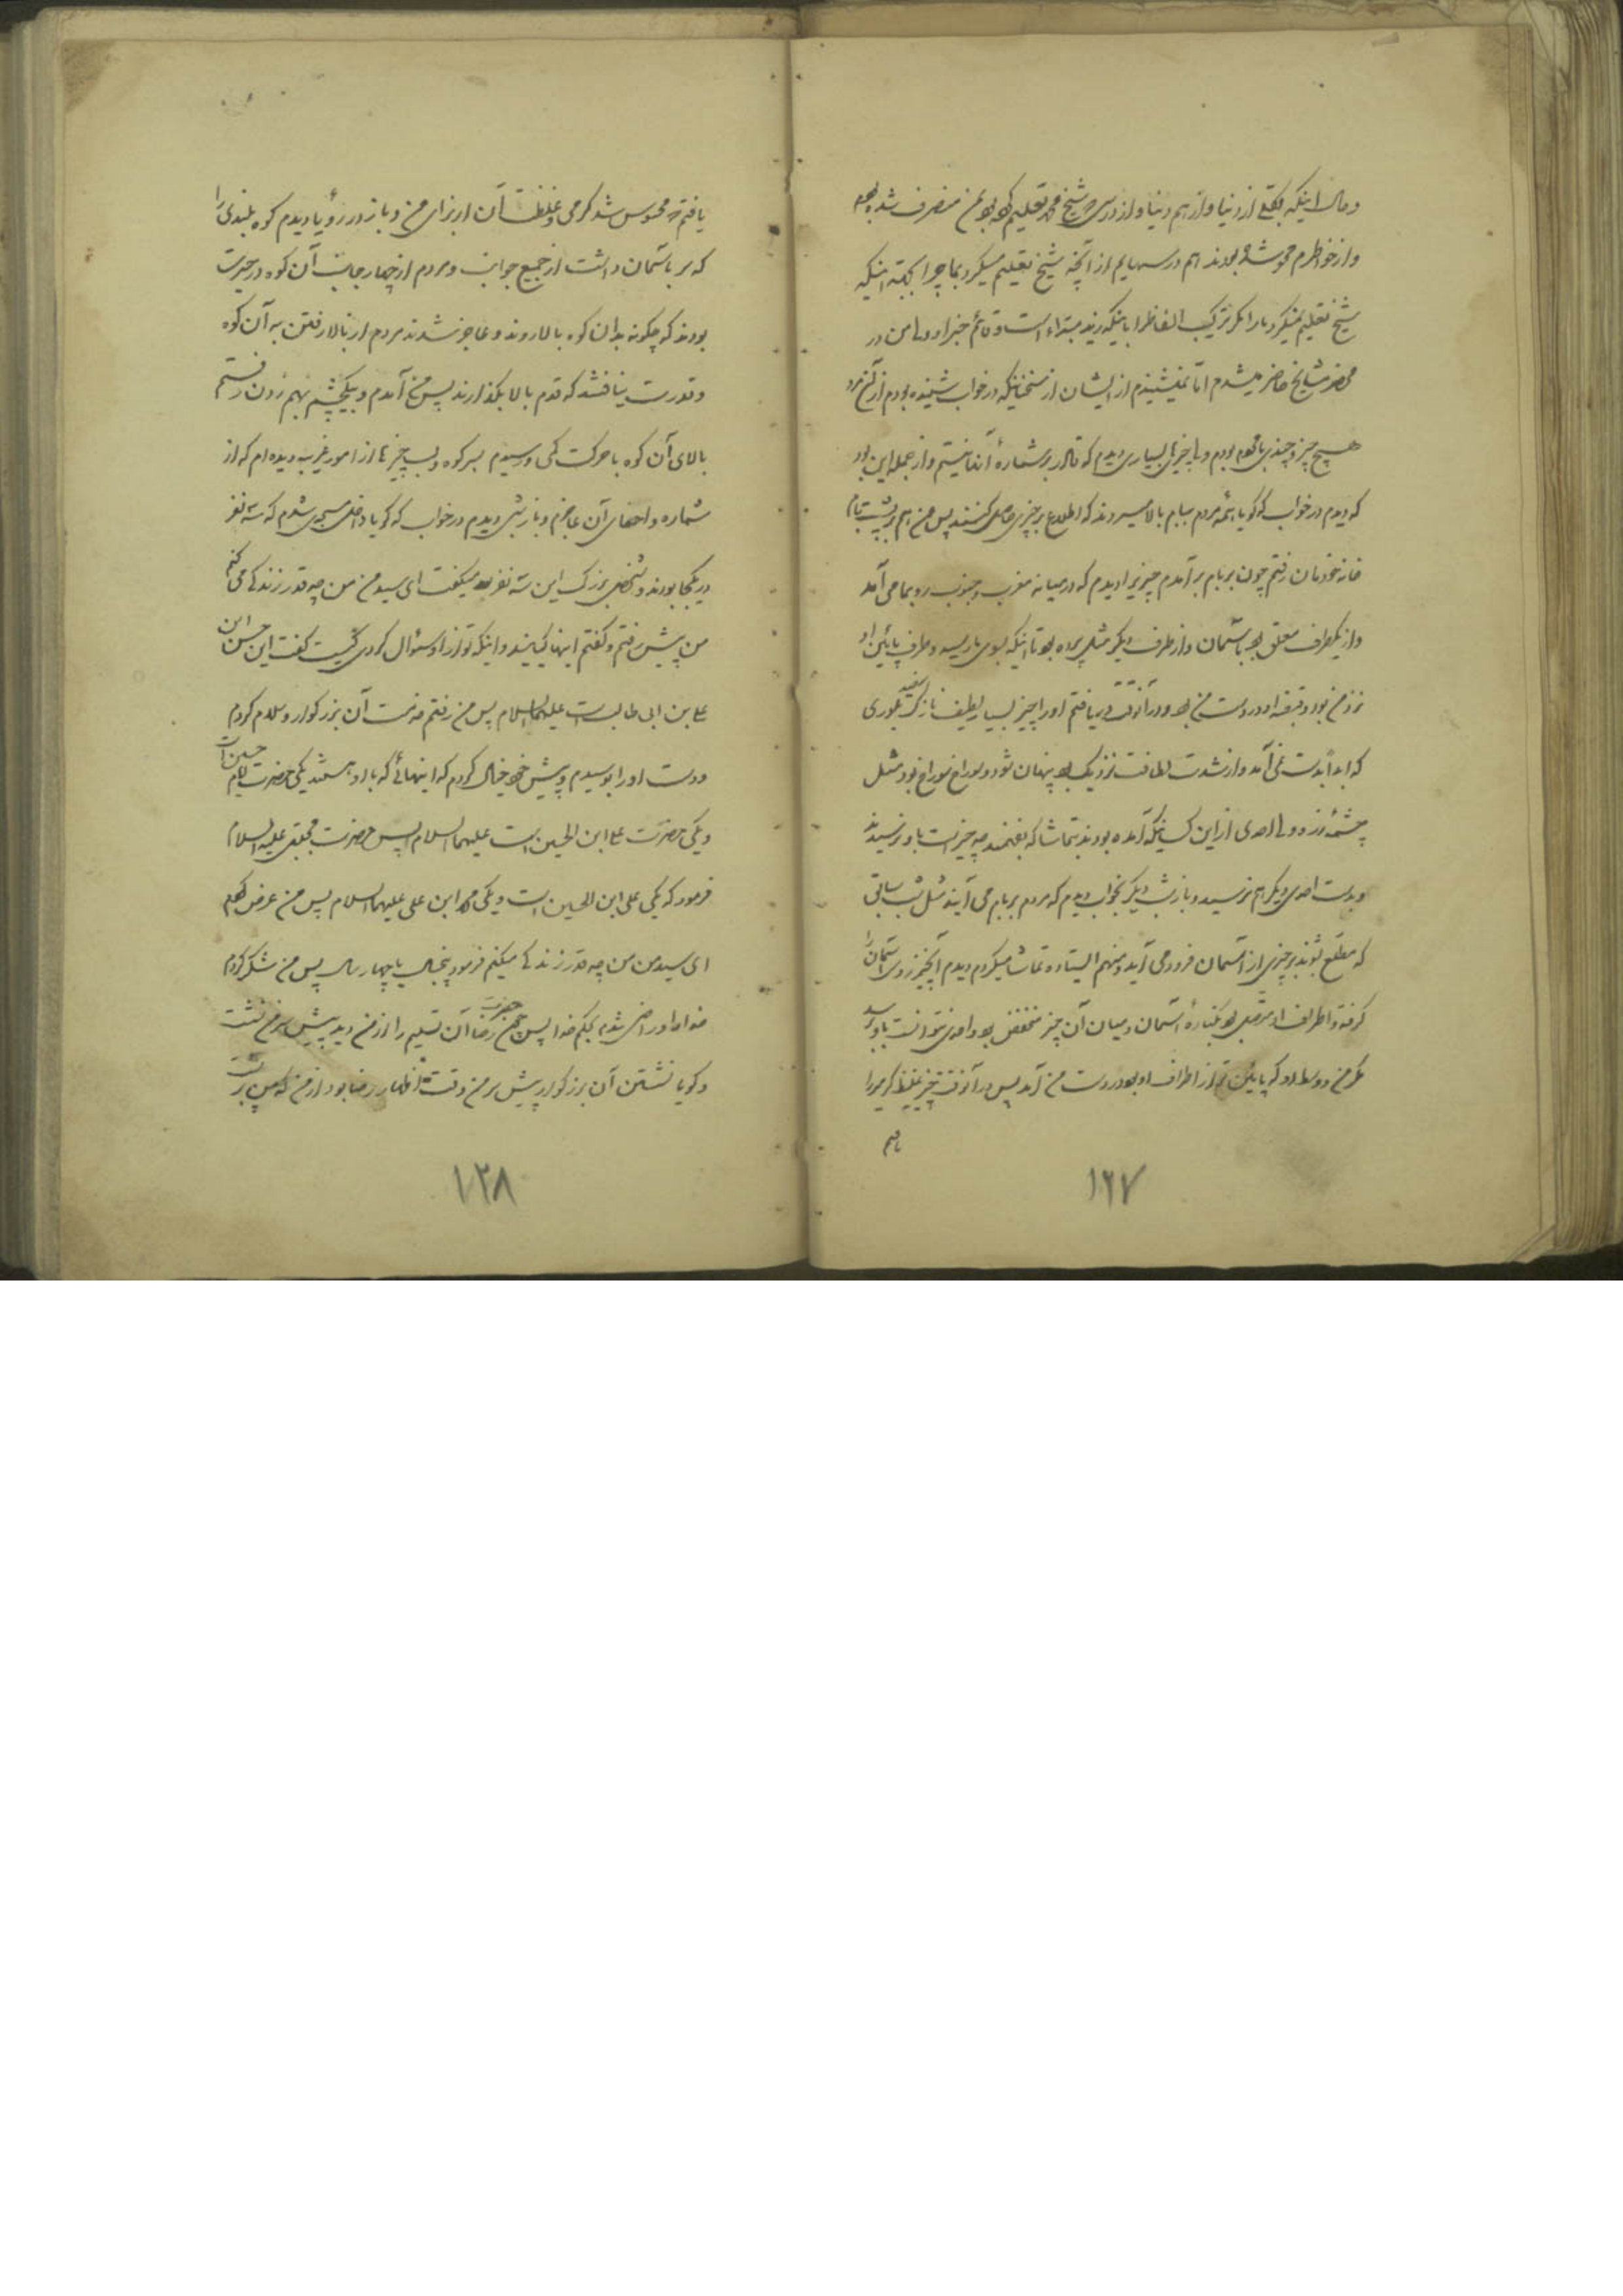 و حال اینکه بکلی از دنیا و از هم دنیا و از درسی که شیخ محمد تعلیم کرده بود بمن منصرف شده بودم
و از خواطرم محو شده بودند هم درسهایم از آنچه شیخ تعلیم میکرد بما چرا بجهة اینکه
شیخ تعلیم نمیکرد ما را مگر ترکیب الفاظ را باینکه زید مبتداء است و قائم خبر او و لا من در
محضر مشایخ حاضر میشدم اما نمیشنیدم از ایشان از سخنانیکه در خواب شنیده بودم از آن مرد
هیچ چیز و چندی باقی بودم و چیزهای بسیاری دیدم که قادر بر شماره آنها نیستم و از جمله این بود
که دیدم در خواب که گویا همه مردم ببام بالا میروند که اطلاع بر چیزی حاصل کنند پس من هم بر پشت بام
خانه خودمان رفتم چون بر بام بر آمدم چیزیرا دیدم که در میانه مغرب و جنوب رو بما می آمد
و از یکطرف معلق بود بآسمان و از طرف دیگر مثل پرده بود تا اینکه بسوی ما رسید و طرف پائین او
نزد من بود و قبضه او در دست من بود و در آنوقت دریافتم او را چیز بسیار لطیف نازک سفید بلوری
که ابداً بدست نمی آمد و از شدت لطافت نزدیک بود پنهان شود و سوراخ سوراخ بود مثل
چشمه زره و احدی از این کسانیکه آمده بودند بتماشا که بفهمند چه چیز است باو نرسیدند
و بدست احدی دیگر هم نرسید و باز شب دیگر بخواب دیدم که مردم بر بام می آیند مثل شب سابق
که مطلع شوند بر چیزی از آسمان فرود می آید و منهم ایستاده تماشا میکردم دیدم آنچیز روی آسمانرا
گرفته و اطراف او متصل بود بکناره آسمان و میان آن چیز منخفض بود و احدی نتوانست باو برسد
مگر من و وسط او که پائین تر از اطراف او بود در دست من آمد پس در آنوقت چیز غلیظ گرمی را
یافتم
۱۲۷
یافتم که محسوس شد گرمی و غلظت آن از برای من و باز در رؤیا دیدم کوه بلندی را
که سر بآسمان داشت از جمیع جوانب و مردم از چهار جانب آن کوه در حیرت
بودند که چگونه بدان کوه بالا روند و عاجز شدند مردم از بالا رفتن به آن کوه
و قدرت نیافتند که قدم بالا بگذارند پس من آمدم و بیکچشم بهم زدن رفتم
بالای آن کوه با حرکت کمی و رسیدم بسر کوه و بسا چیزها از امور غریب دیده ام که از
شماره و احصای آن عاجزم و باز شبی دیدم در خواب که گویا داخل مسجدی شدم که سه نفر
در یکجا بودند و شخصی بزرگ این سه نفر میگفت ای سید من من چه قدر زندگی می کنم
من پیش رفتم و گفتم اینها کیانند و اینکه تو از او سؤال کردی کیست گفت این حسن ابن
علی بن ابی طالب است علیهما السلام پس من رفتم خدمت آن بزرگوار و سلام کردم
و دست او را بوسیدم و پیش خود خیال کردم که اینهائی که با او هستند یکی حضرت امام حسین است
و یکی حضرت علی ابن الحسین است علیهما السلام پس حضرت مجتبی علیه السلام
فرمود که یکی علی ابن الحسین است و یکی محمد ابن علی علیهما السلام پس من عرض کردم
ای سید من من چه قدر زندگی میکنم فرمود پنجسال یا چهار سال پس من شکر کردم
خدا را و راضی شدم بحکم خدا پس چون حضرت رضا آن تسلیم را از من دید پیش سر من نشست
و گویا نشستن آن بزرگوار پیش سر من وقت اظهار رضا بود از من که من بر پشت
۱۲۸